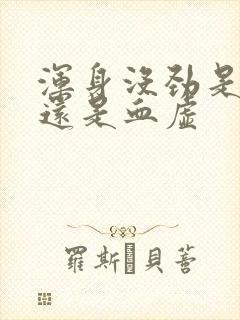 渾身沒勁是
還是血虛
羅斯·貝菩